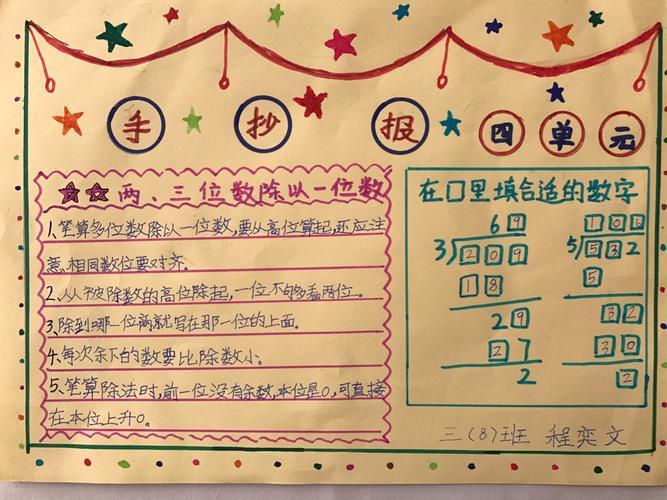 手抄报四单元
两、三位数除以一位数
1、笔算多位数除以一位数,要从高位算起,还应注
意、相同数位要对齐。
2、从被除数的高位除起,一位不够多看两位。
3、除到哪一位商就写在那一位的上面。
4、每次余下的数要比除数小。
5、笔算除法时,前一位没有余数,本位是0,可直接
在本位上升0。
在□里填合适的数字
69
3 209
18
29
27
2
5 532
5
32
30
2
三(8)班 程奕文